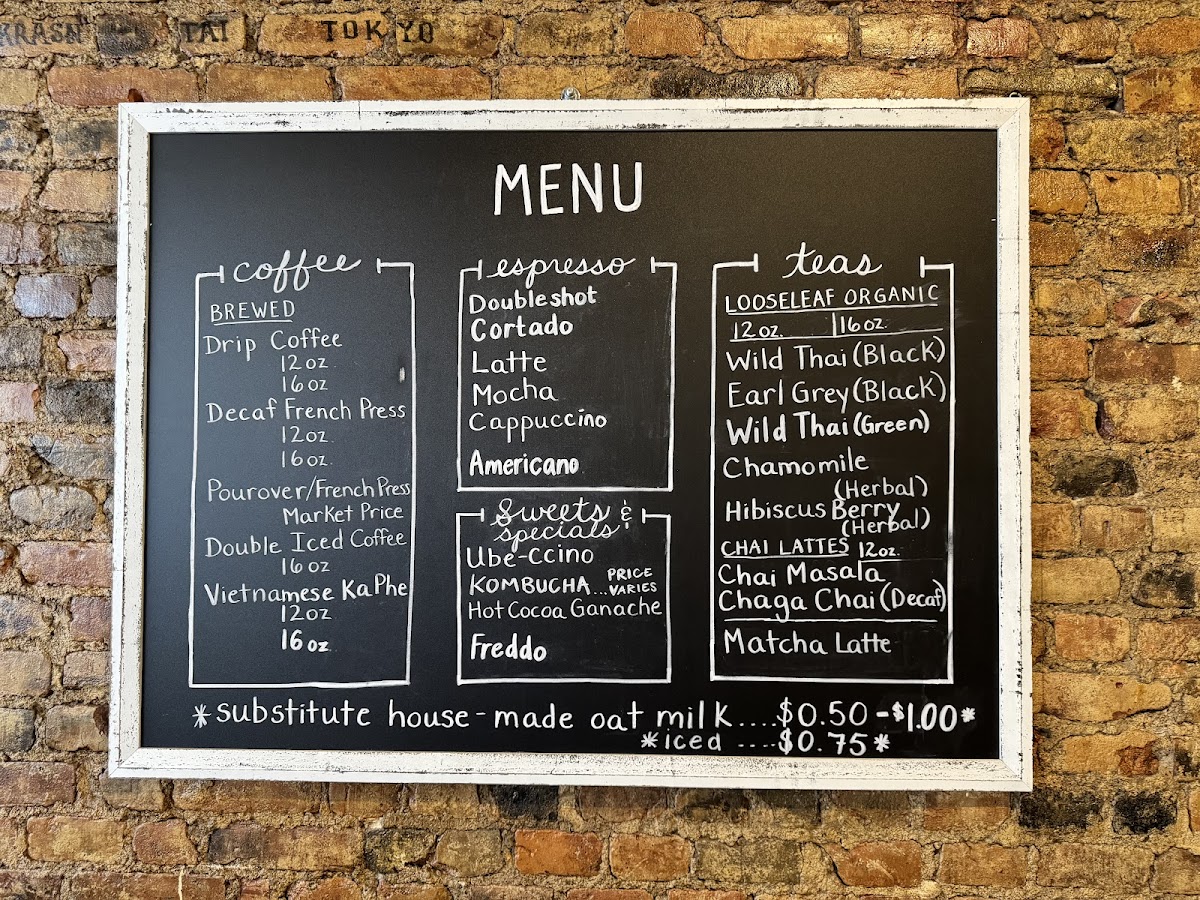 TAI TOKYO
MENU
coffee
BREWED
Drip Coffee
12oz
16oz
Decaf French Press
12oz.
16oz.
Pourover/French Press
Market Price
Double Iced Coffee
16oz
Vietnamese KaPhe
12oz
16oz.
espresso
Doubleshot
Cortado
Latte
Mocha
Cappuccino
Americano
Sweets &
specials
Ube-ccino
KOMBUCHA...PRICE
VARIES
Hot Cocoa Ganache
Freddo
teas
LOOSELEAF ORGANIC
12oz. |16oz.
Wild Thai (Black)
Earl Grey (Black)
Wild Thai (Green)
Chamomile
(Herbal)
Hibiscus Berry
(Herbal)
CHAI LATTES 12oz.
Chai Masala
Chaga Chai (Decaf)
Matcha Latte
*substitute house-made oat milk....$0.50-$1.00*
*iced ....$0.75*